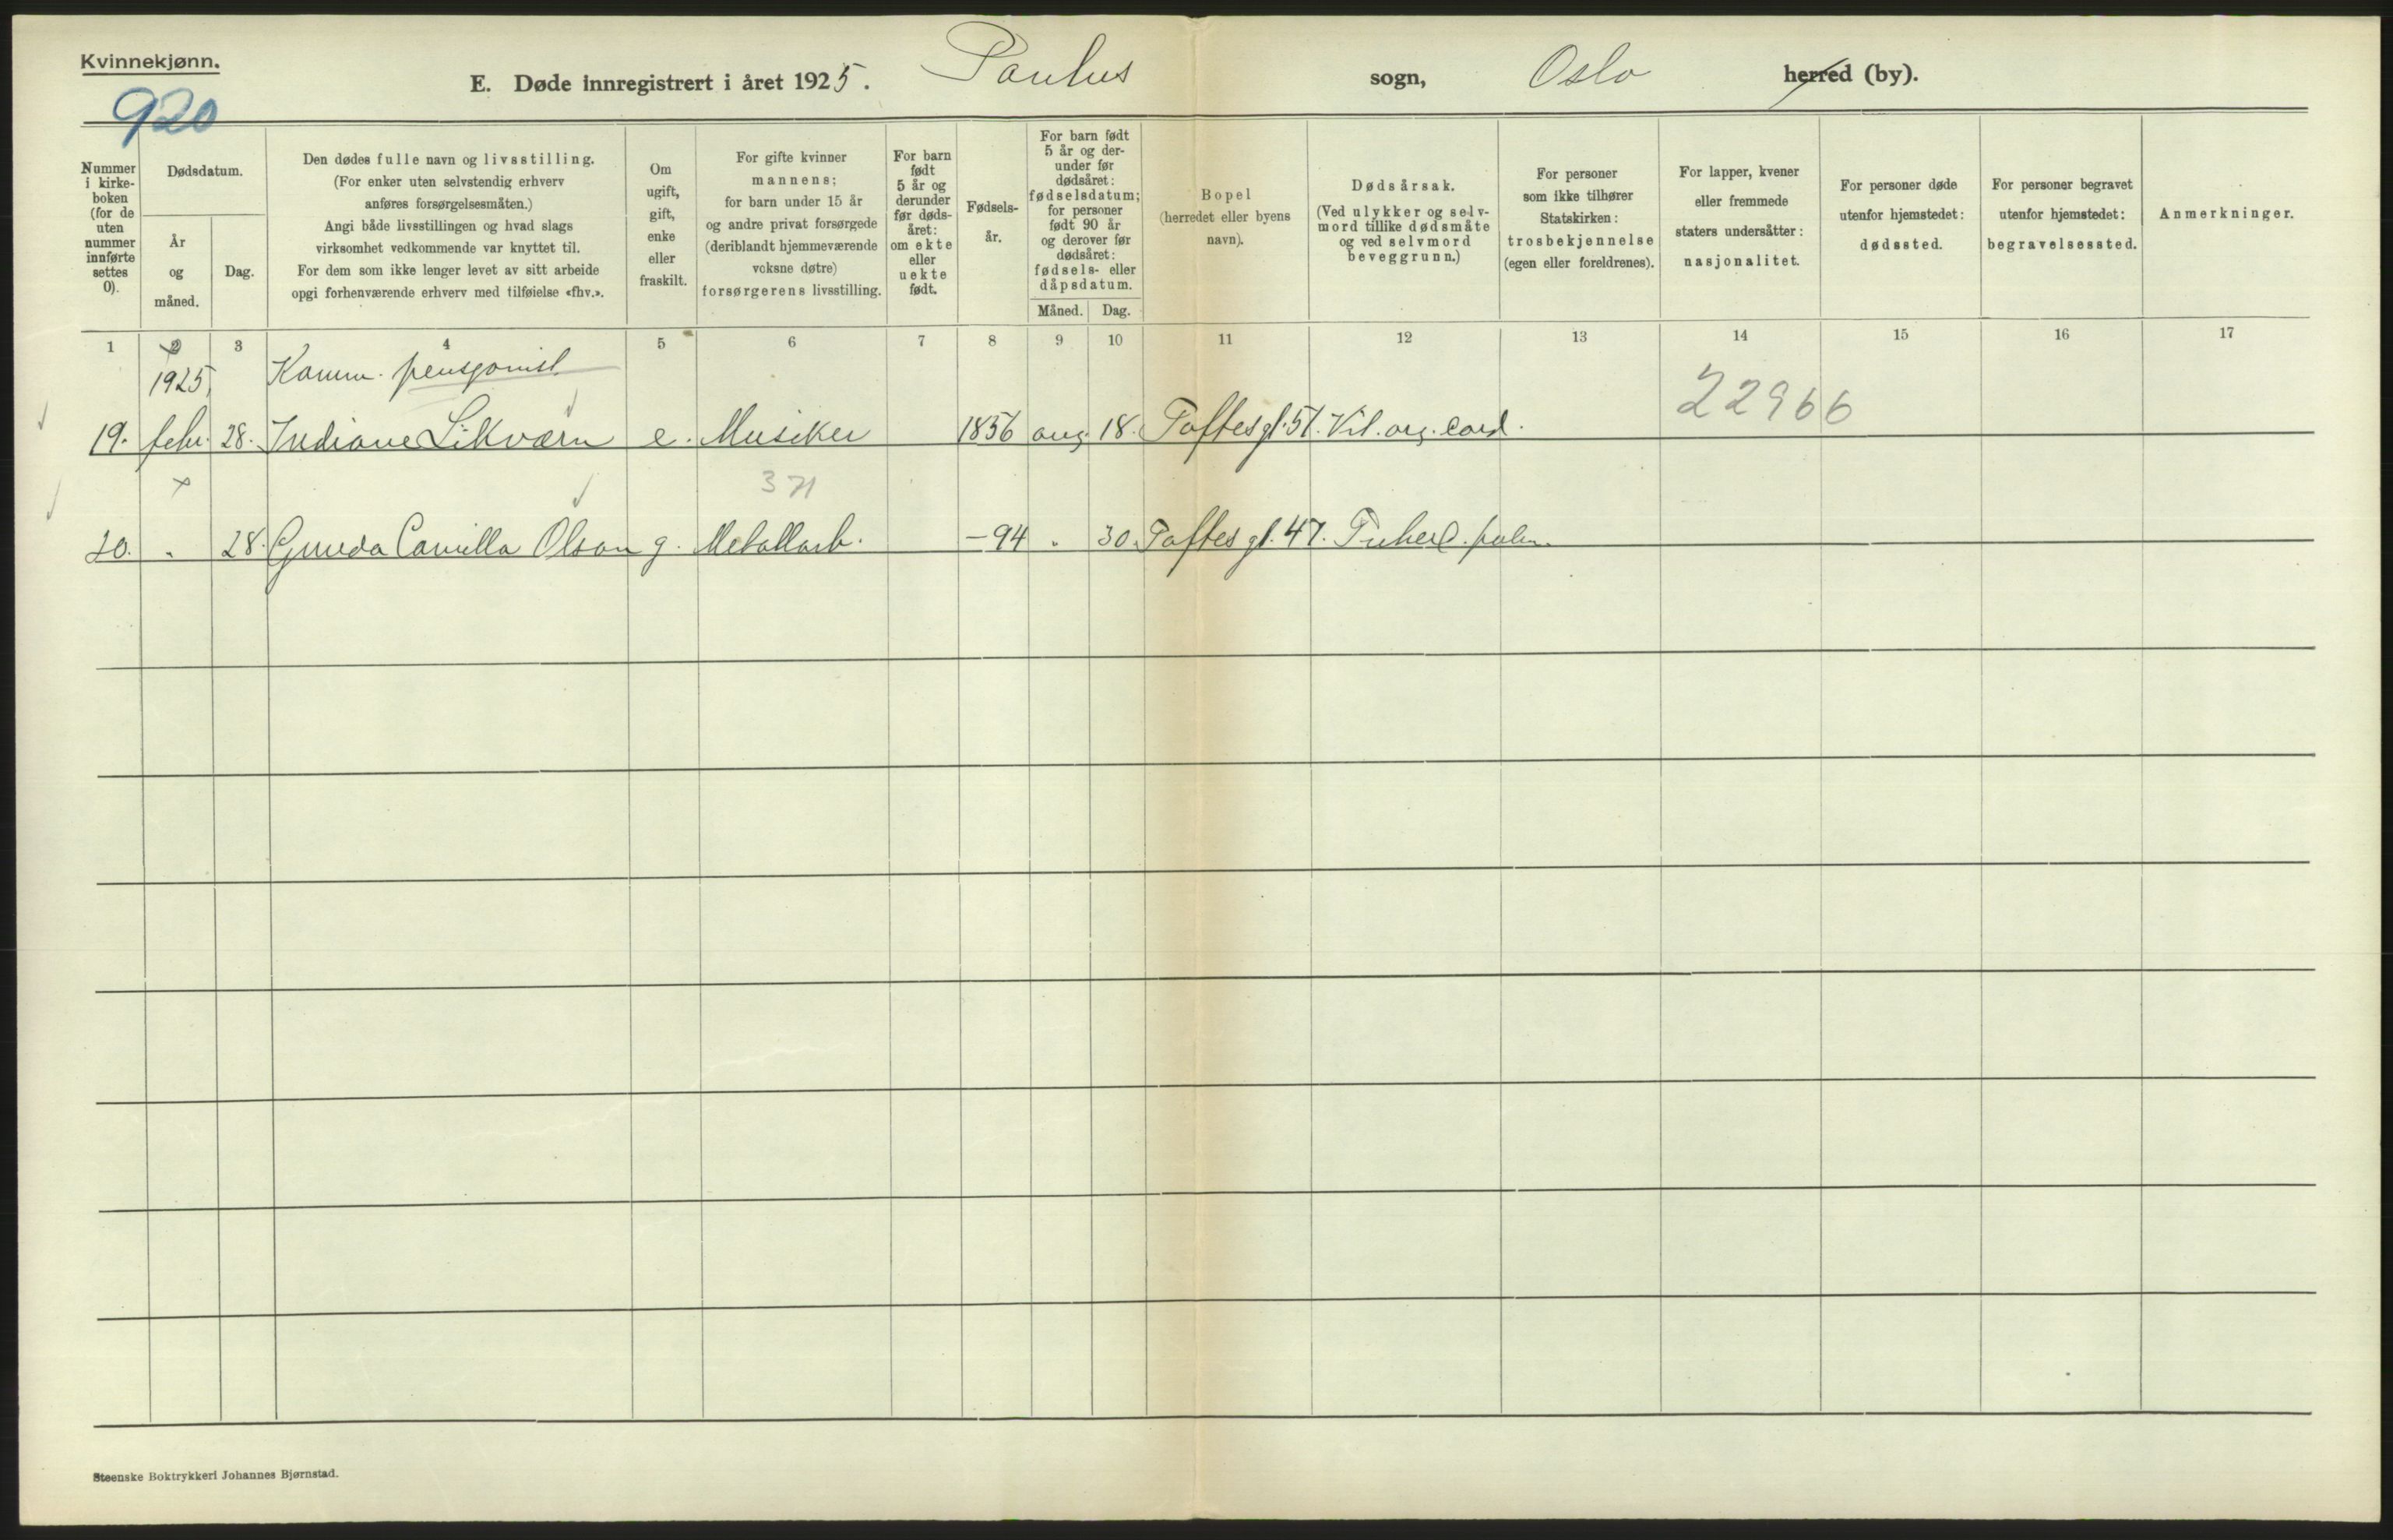 Kvinnekjønn.
920
E. Døde innregistrert i året 1925. Paulus sogn, Oslo herred (by).
Nummer i kirke- boken (for de uten nummer innførte settes 0).
Dødsdatum.
År og måned.
Dag.
Den dødes fulle navn og livsstilling.
(For enker uten selvstendig erhverv
anføres forsørgelsesmåten.)
Angi både livsstillingen og hvad slags
virksomhet vedkommende var knyttet til.
For dem som ikke lenger levet av sitt arbeide
opgi forhenværende erhverv med tilføielse «fhv.».
Om ugift, gift, enke eller fraskilt.
For gifte kvinner
mannens;
for barn under 15 år
og andre privat forsørgede
(deriblandt hjemmeværende
voksne døtre)
forsørgerens livsstilling.
For barn født 5 år og derunder før døds- året: om ekte eller uekte født.
Fødsels- år.
For barn født 5 år og der- under før dødsåret: fødselsdatum; for personer født 90 år og derover før dødsåret: fødsels- eller dåpsdatum.
Måned. Dag.
Bopel
(herredet eller byens
navn).
Dødsårsak.
(Ved ulykker og selv-
mord tillike dødsmåte
og ved selvmord
beveggrunn.)
For personer
som ikke tilhører
Statskirken:
trosbekjennelse
(egen eller foreldrenes).
For lapper, kvener
eller fremmede
staters undersåtter:
nasjonalitet.
For personer døde
utenfor hjemstedet:
dødssted.
For personer begravet
utenfor hjemstedet:
begravelsessted.
Anmerkninger.
1 2 3 4 5 6 7 8 9 10 11 12 13 14 15 16 17
1925 Komm. pensjonist
22966
19. febr. 28. Indiane Likværn e. Musiker 1856 aug. 18. Toftesgt. 51. Vit. org. cord.
371
20. " 28. Gunda Camilla Olson g. Metallarb. -94 " 30. Toftes gt. 47. Tuberc. pulm.
Steenske Boktrykkeri Johannes Bjørnstad.